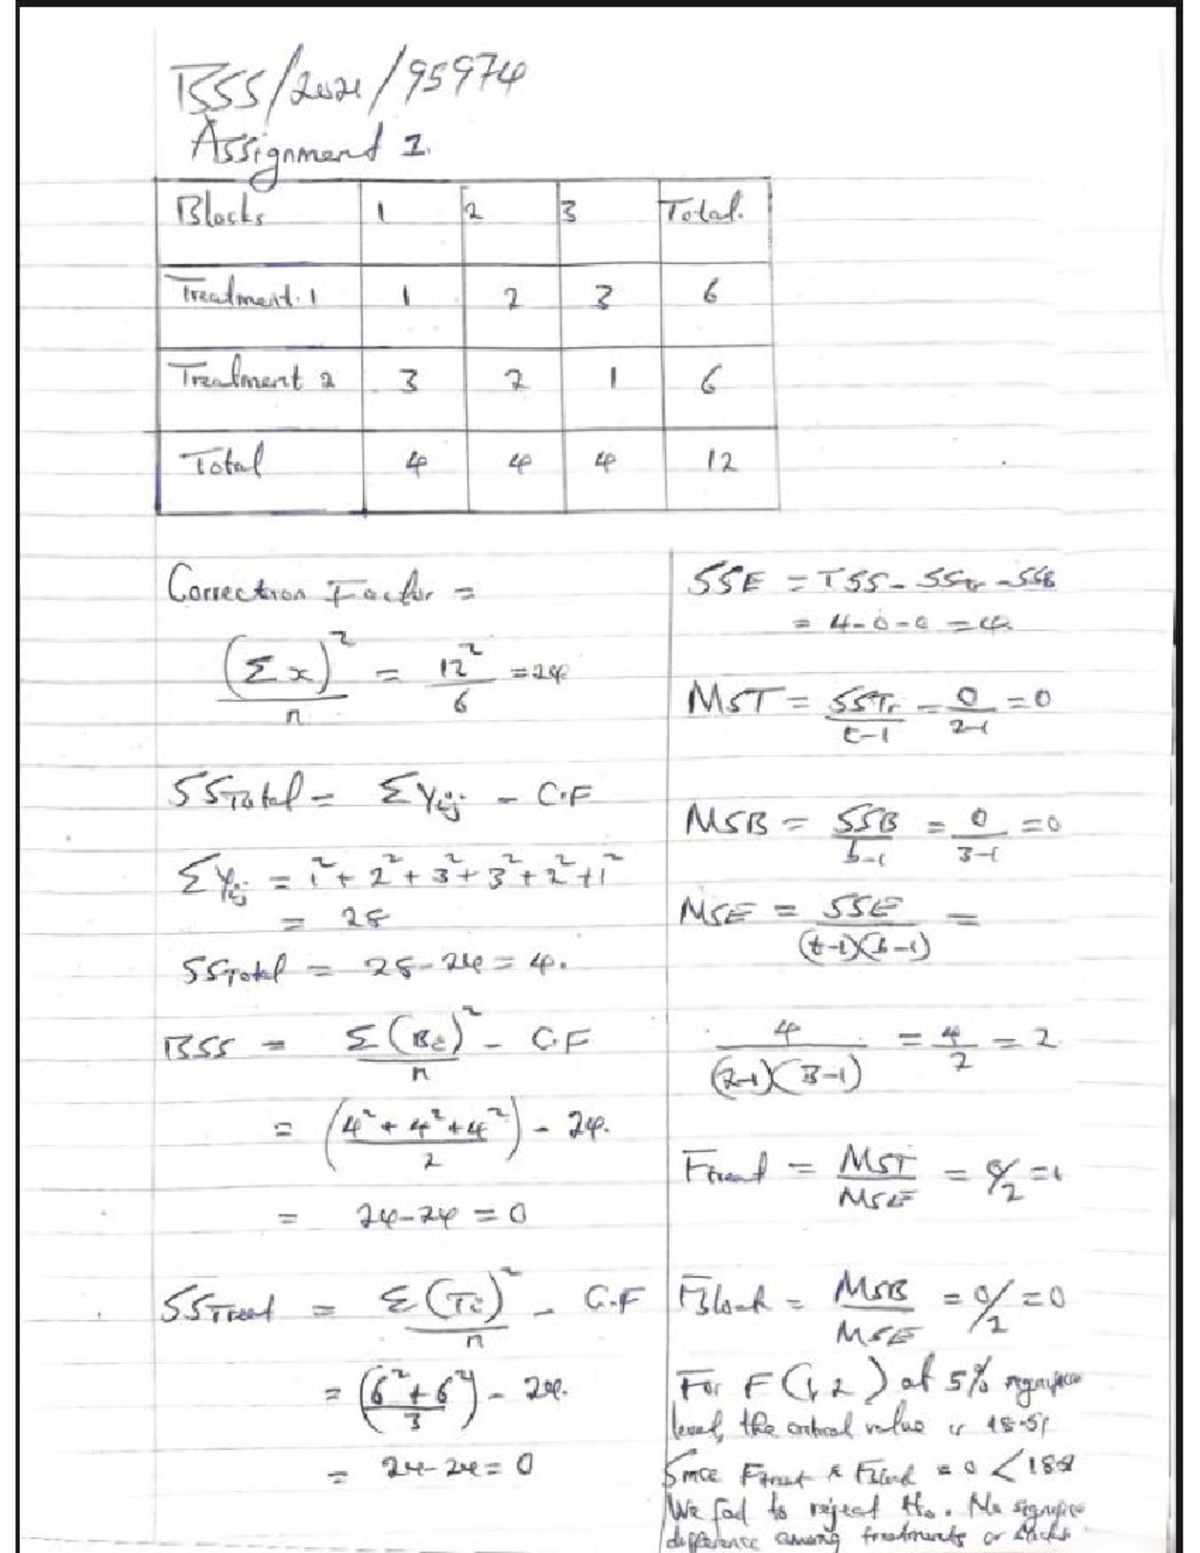 BSS/2021/95974
Assignment 1.
Blocks 1 2 3 Total.
Treatment. 1 1 2 3 6
Treatment 2 3 2 1 6
Total 4 4 4 12
Correction Factor =
(Σx)² / n = 12² / 6 = 24
SSTotal = ΣYij - C.F
ΣYij = 1² + 2² + 3² + 3² + 2² + 1²
= 28
SSTotal = 28 - 24 = 4.
BSS = Σ(Bi)² / n - C.F
= (4² + 4² + 4² / 2) - 24.
= 24 - 24 = 0
SSTreat = Σ(Ti)² / n - C.F
= (6² + 6² / 3) - 24.
= 24 - 24 = 0
SSE = TSS - SStr - SSB
= 4 - 0 - 0 = 4
MST = SSTr / t-1 = 0 / 2-1 = 0
MSB = SSB / b-1 = 0 / 3-1 = 0
MSE = SSE / (t-1)(b-1) =
4 / (2-1)(3-1) = 4 / 2 = 2
Ftreat = MST / MSE = 0/2 =
Fblock = MSB / MSE = 0/2 = 0
For F (1, 2) at 5% significance
level, the critical value is 18.51
Since Ftreat & Fblock = 0 <
We fail to reject Ho. No significance
difference among treatments or blocks